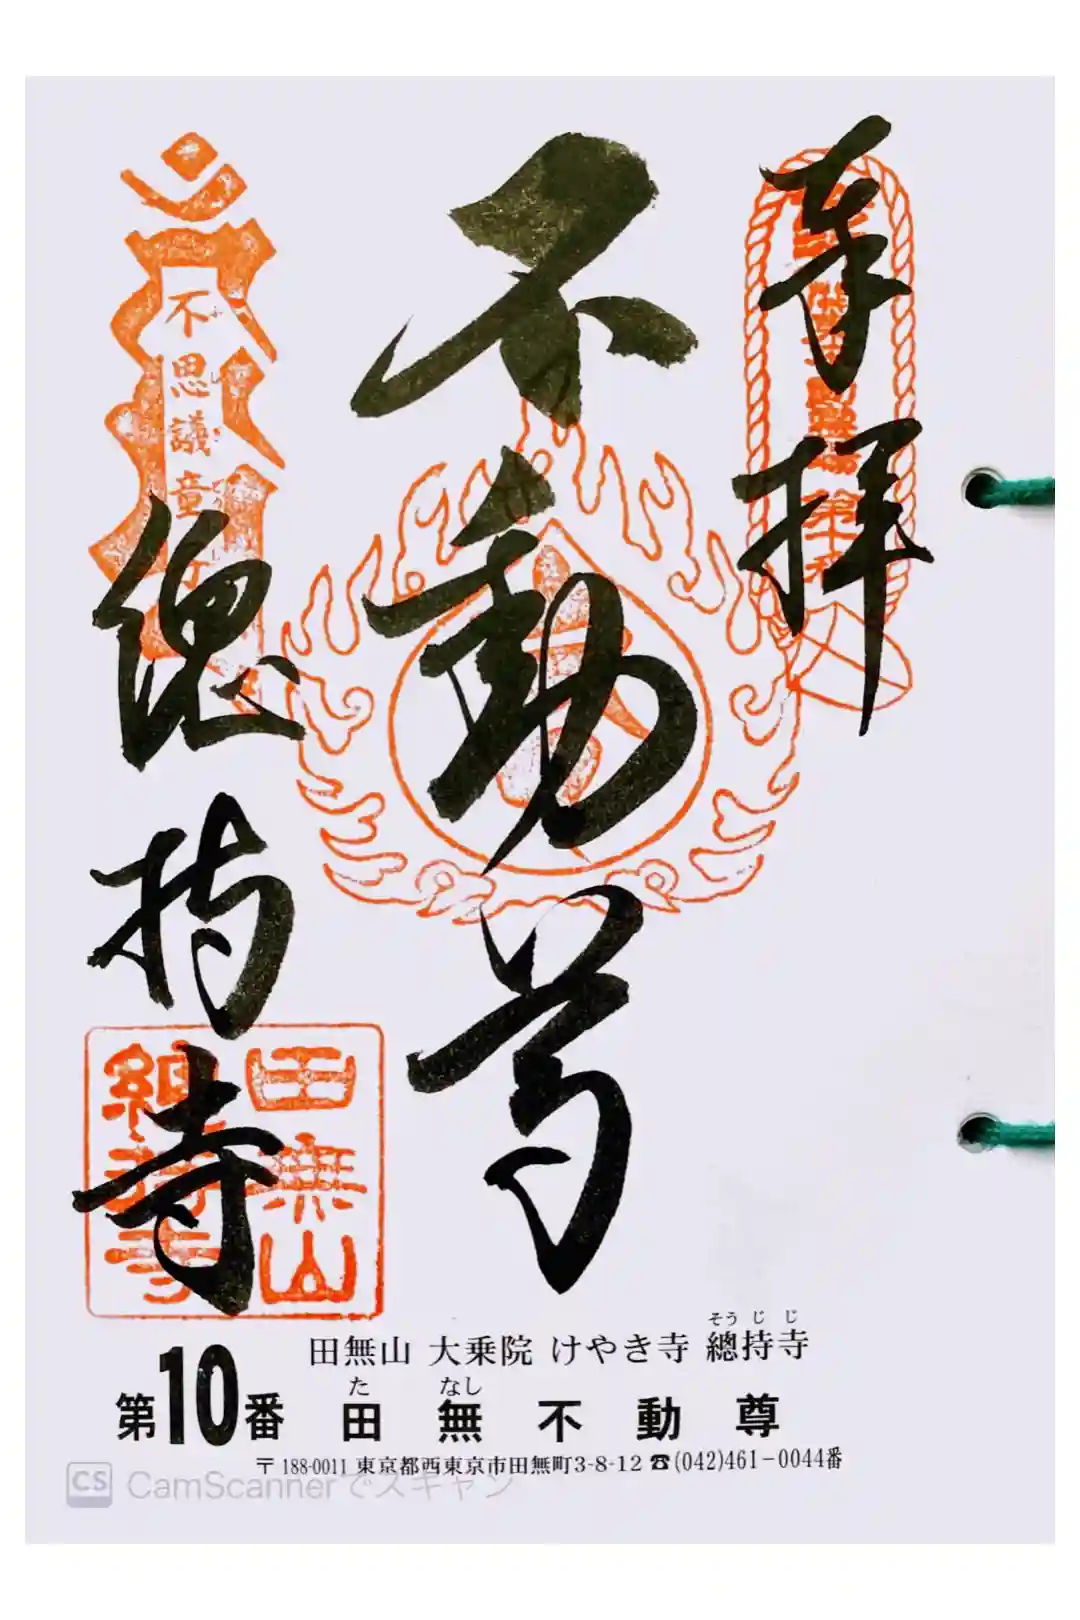 奉拝
不動尊
總持寺
不思議童
第十番
田無山
總持寺
田無山 大乗院 けやき寺 總持寺
そうじじ
第10番 田無不動尊
た なし
〒188-0011 東京都西東京市田無町3-8-12 ☎(042)461-0044番
CS CamScannerでスキャン